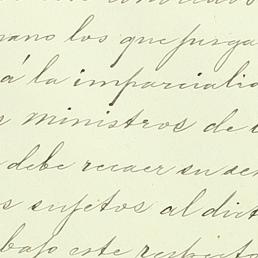 mano los que juzga
á la imparciali
s ministros de
debe recaer su sen
s sujetos al dict
bajo este respecto